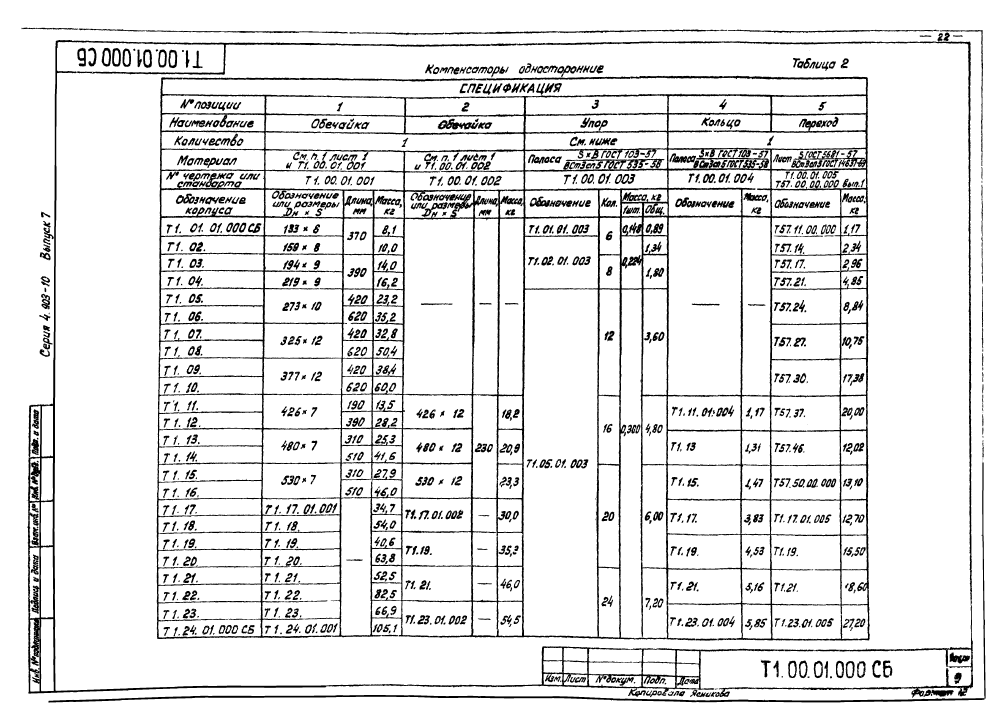 — 22 —
Т1.00.01.000 СБ
Компенсаторы односторонние
Таблица 2
СПЕЦИФИКАЦИЯ
№ позиции 1 2 3 4 5
Наименование Обечайка Обечайка Упор Кольцо Переход
Количество 1 См. ниже 1
Материал См. п. 1 лист 1 и Т1.00.01.001 См. п. 1 лист 1 и Т1.00.01.002 Полоса 5×8 ГОСТ 103-57 / ВСт3сп5 ГОСТ 535-58 Полоса 5×8 ГОСТ 103-57 / ВСт3сп5 ГОСТ 535-58 Лист 5 ГОСТ 5681-57 / ВСт3сп5 ГОСТ 14637-69
№ чертежа или стандарта Т1.00.01.001 Т1.00.01.002 Т1.00.01.003 Т1.00.01.004 Т1.00.01.005 Т57.00.00.000 Вып.1
Обозначение корпуса Обозначение или размеры Dн × S Длина, мм Масса, кг Обозначение или размеры Dн × S Длина, мм Масса, кг Обозначение Кол. Масса, кг 1шт. Общ. Обозначение Масса, кг Обозначение Масса, кг
Т1. 01. 01.000 СБ 133 × 6 370 8,1 — — — Т1.01.01.003 6 0,148 0,89 — — Т57.11.00.000 1,17
Т1. 02. 159 × 8 10,0 Т1.02.01.003 0,224 1,34 Т57.14. 2,34
Т1. 03. 194 × 9 390 14,0 8 1,80 Т57.17. 2,96
Т1. 04. 219 × 9 16,2 Т57.21. 4,85
Т1. 05. 273 × 10 420 23,2 Т1.05.01.003 12 0,300 3,60 Т57.24. 8,84
Т1. 06. 620 35,2
Т1. 07. 325 × 12 420 32,8 Т57.27. 10,75
Т1. 08. 620 50,4
Т1. 09. 377 × 12 420 38,4 Т57.30. 17,38
Т1. 10. 620 60,0
Т1. 11. 426 × 7 190 13,5 426 × 12 230 18,2 16 4,80 Т1.11.01.004 1,17 Т57.37. 20,00
Т1. 12. 390 28,2
Т1. 13. 480 × 7 310 25,3 480 × 12 20,9 Т1.13 1,31 Т57.46. 12,02
Т1. 14. 510 41,6
Т1. 15. 530 × 7 310 27,9 530 × 12 23,3 20 6,00 Т1.15. 1,47 Т57.50.00.000 13,10
Т1. 16. 510 46,0
Т1. 17. Т1.17.01.001 — 34,7 Т1.17.01.002 — 30,0 Т1.17. 3,83 Т1.17.01.005 12,70
Т1. 18. Т1.18. 54,0
Т1. 19. Т1.19. 40,6 Т1.19. — 35,3 Т1.19. 4,53 Т1.19. 15,50
Т1. 20. Т1.20. 63,8
Т1. 21. Т1.21. 52,5 Т1.21. — 46,0 24 7,20 Т1.21. 5,16 Т1.21. 18,60
Т1. 22. Т1.22. 82,5
Т1. 23. Т1.23. 66,9 Т1.23.01.002 — 54,5 Т1.23.01.004 5,85 Т1.23.01.005 27,20
Т1.24.01.000 СБ Т1.24.01.001 105,1
Серия 4.903-10 Выпуск 7
Инв. № подлинника Подпись и дата Взам. инв. № Инв. № дубл. Подп. и дата
Изм. Лист № докум. Подп. Дата
Т1.00.01.000 СБ
Лист
9
Копировала
Формат 12